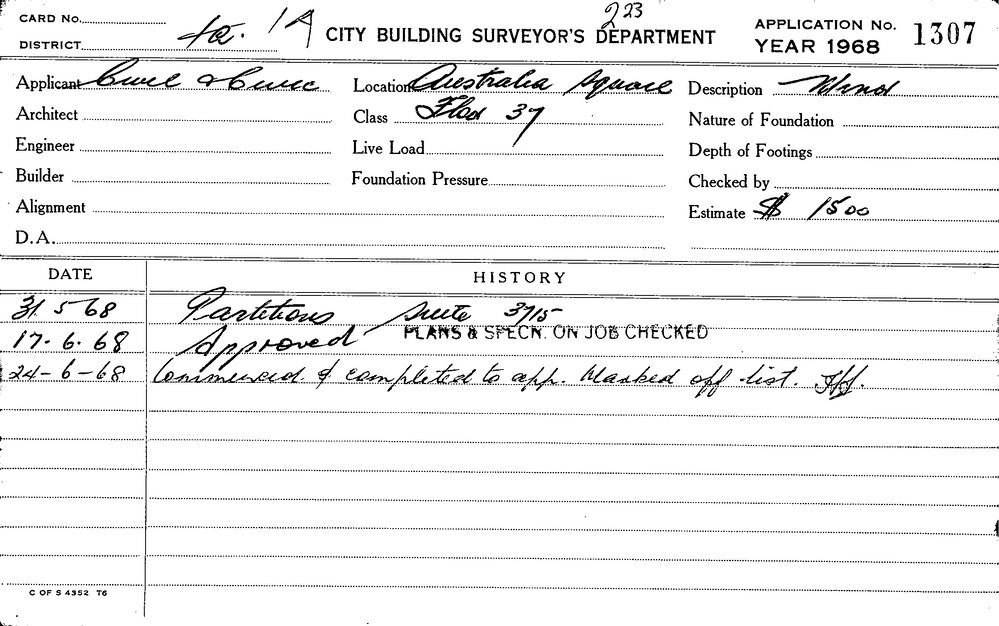 223
CARD No.
1A
CITY BUILDING SURVEYOR'S DEPARTMENT
APPLICATION No. 1307
DISTRICT
YEAR 1968
Applicant Civil & Civic Location Australia Square Description
Architect Class 37 Nature of Foundation
Engineer Live Load Depth of Footings
Builder Foundation Pressure Checked by
Alignment Estimate $ 1500
D.A.
DATE HISTORY
31 5 68 Partitions Suite 3715
17. 6. 68 Approved PLANS & SPECN. ON JOB CHECKED
24-6-68 Commenced & completed to app. Marked off list.
C OF S 4352 T6